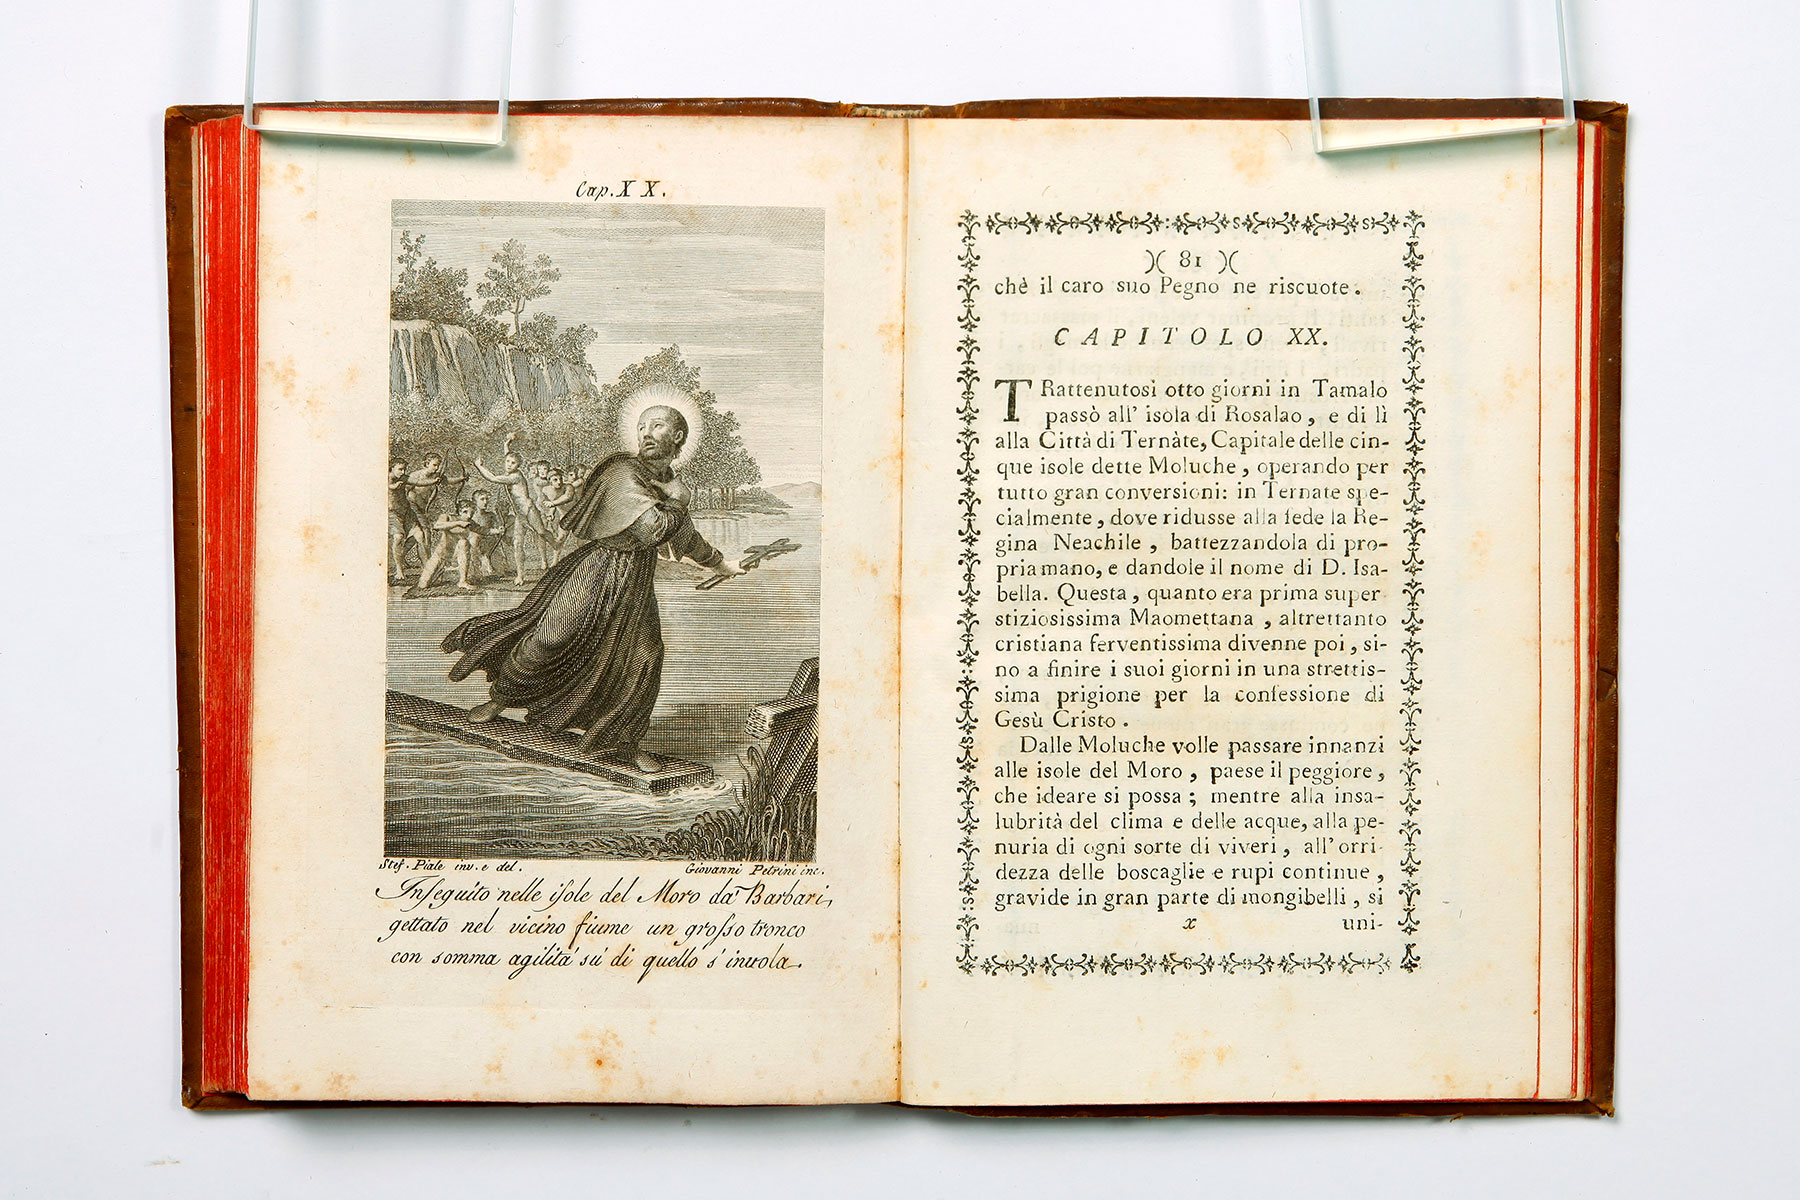 Cap. X X.
Stef. Piale inv. e del.
Giovanni Petrini inc.
Inſeguito nelle iſole del Moro da' Barbari,
gettato nel vicino fiume un groſso tronco
con somma agilità sù di quello s' invola.
)( 81 )(
chè il caro suo Pegno ne riscuote.
CAPITOLO XX.
TRattenutosi otto giorni in Tamalo
passò all' isola di Rosalao, e di lì
alla Città di Ternàte, Capitale delle cin-
que isole dette Moluche, operando per
tutto gran conversioni: in Ternate spe-
cialmente, dove ridusse alla fede la Re-
gina Neachile, battezzandola di pro-
pria mano, e dandole il nome di D. Isa-
bella. Questa, quanto era prima super
stiziosissima Maomettana, altrettanto
cristiana ferventissima divenne poi, si-
no a finire i suoi giorni in una strettis-
sima prigione per la confessione di
Gesù Cristo.
Dalle Moluche volle passare innanzi
alle isole del Moro, paese il peggiore,
che ideare si possa; mentre alla insa-
lubrità del clima e delle acque, alla pe-
nuria di ogni sorte di viveri, all' orri-
dezza delle boscaglie e rupi continue,
gravide in gran parte di mongibelli, si
x uni-